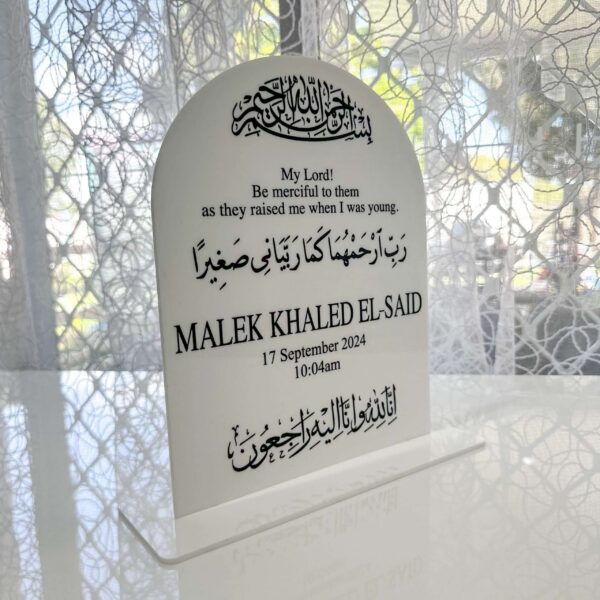 بسم الله الرحمن الرحيم
My Lord!
Be merciful to them
as they raised me when I was young.
رَبِّ ٱرْحَمْهُمَا كَمَا رَبَّيَانِى صَغِيرًا
MALEK KHALED EL-SAID
17 September 2024
10:04am
إنا لله وإنا إليه راجعون